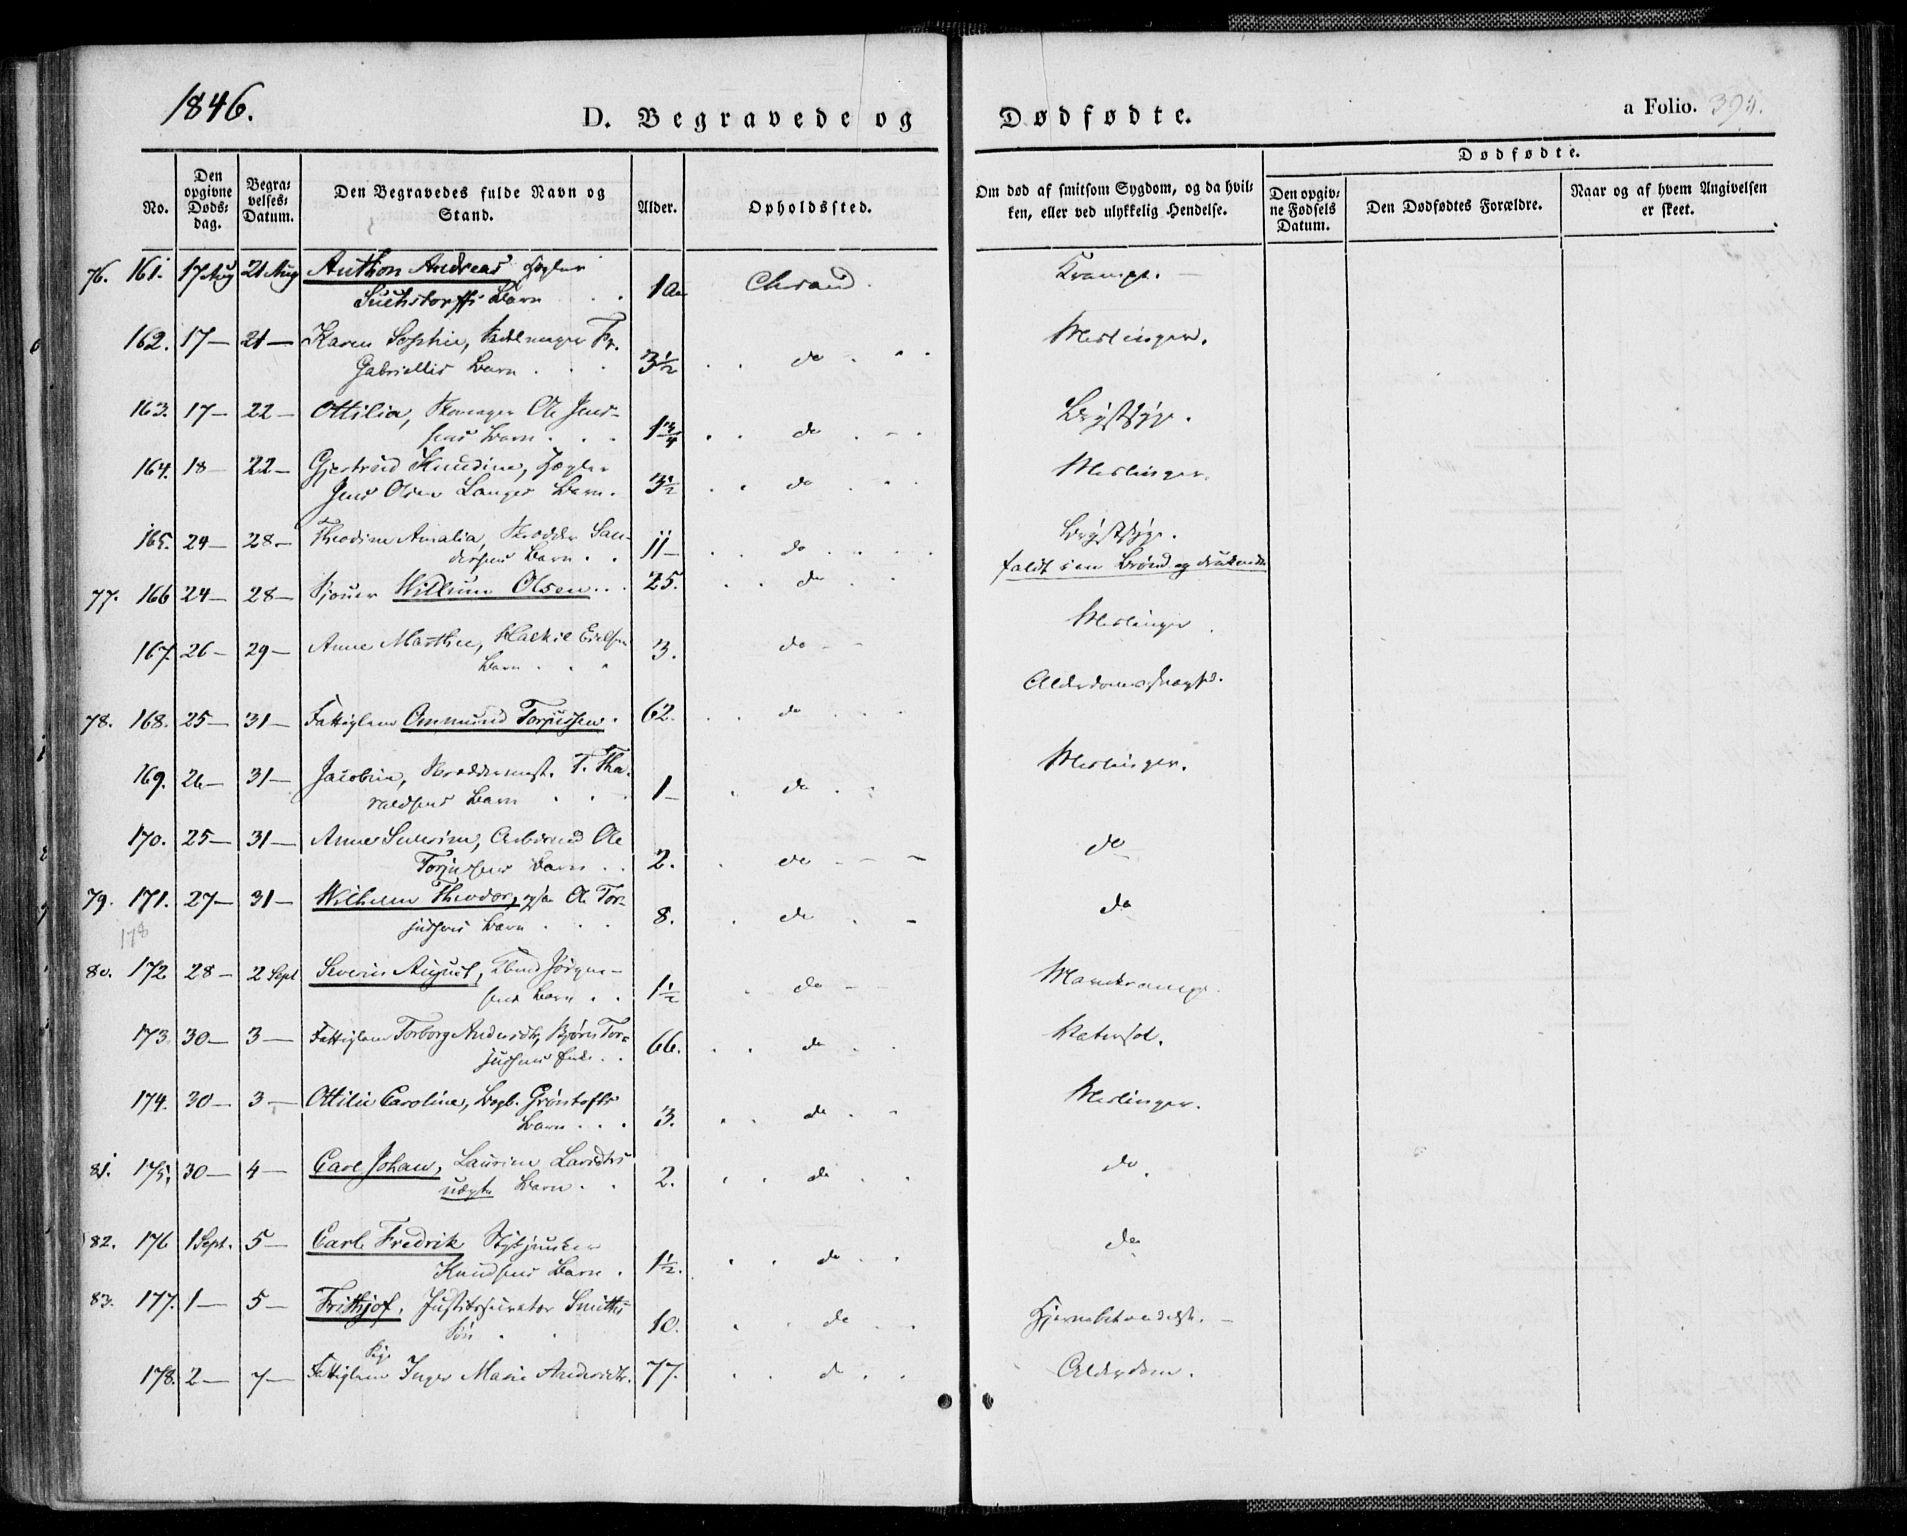 1846.
D. Begravede og Dødfødte.
a Folio. 394.
No.
Den opgivne Døds-dag.
Begra-velses-Datum.
Den Begravedes fulde Navn og Stand.
Alder.
Opholdssted.
Om død af smitsom Sygdom, og da hvil-ken, eller ved ulykkelig Hendelse.
Dødfødte.
Den opgiv-ne Fødsels Datum.
Den Dødfødtes Forældre.
Naar og af hvem Angivelsen er skeet.
76. 161. 17 Aug 21 Aug Anthon Andreas, 1 Chrsand. Krampe. —
Suhstorffs Barn . .
162. 17 — 21 — Karen Sophie, Fr. 3½ . . do . . . Meslinger.
Gabriellis Barn . . .
163. 17 — 22 — Ottilia, Ole Jens- 1¾ . . do . - . Brystsyge.
sens Barn . . .
164. 18 — 22 — Gjertrud Knudine, 3½ . . do . . . Meslinger.
Jens Olsen Langes Barn .
165. 24 — 28 — Theodine Amalia, Skrædder San- 11 — . . do . . . . Brystsyge.
dersens Barn . .
77. 166 24 — 28 — Willum Olsen . . . 25. . . do . . faldt i en Brønd og druknede
167. 26 — 29 — Anne Marthe, Eielsen 3. do - - Meslinger.
Barn . . .
78. 168. 25 — 31 — Fattiglem Ommund Torjussen . 62. . . do . . . Alderdomssvaghed.
169. 26 — 31 — Jacobine, Skræddermest. T. Tha- 1 — . do . . Meslinger.
raldsens Barn . . .
170. 25 — 31 — Anne Severine, Arbeismd Ole 2. . do - - - do
Torjussens Barn . .
79. 171. 27 — 31 — Wilhelm Theodor, O. Tor- 8. . do . - do
jussens Barn . . .
178
80. 172 28 — 2 Sept Severin August, Jörgen- 1½ . do - - Mavekrampe.
sens Barn . .
173. 30 — 3 — Fattiglem Torborg Andersdtr, Björn Tor- 66. . . do . . Vatersot.
jussens Enke . .
174. 30 — 3 — Ottilie Caroline, Gröntofts 3. . . do . . Meslinger.
Barn . . .
81. 175. 30 — 4 — Carl Johan, Laurine 2. . . do . . do.
uægte Barn . .
82. 176 1 Sept. 5 — Carl Fredrik Stykjunker 1½. . . do . . do
Knudsens Barn .
83. 177. 1 — 5 — Frithjof, Smiths 10. . . do . . Hjernebetændelse. —
Søn . .
Pige
178. 2 — 7 — Fattiglem Inger Marie Andersdtr. 77. . . d . . Alderdom.